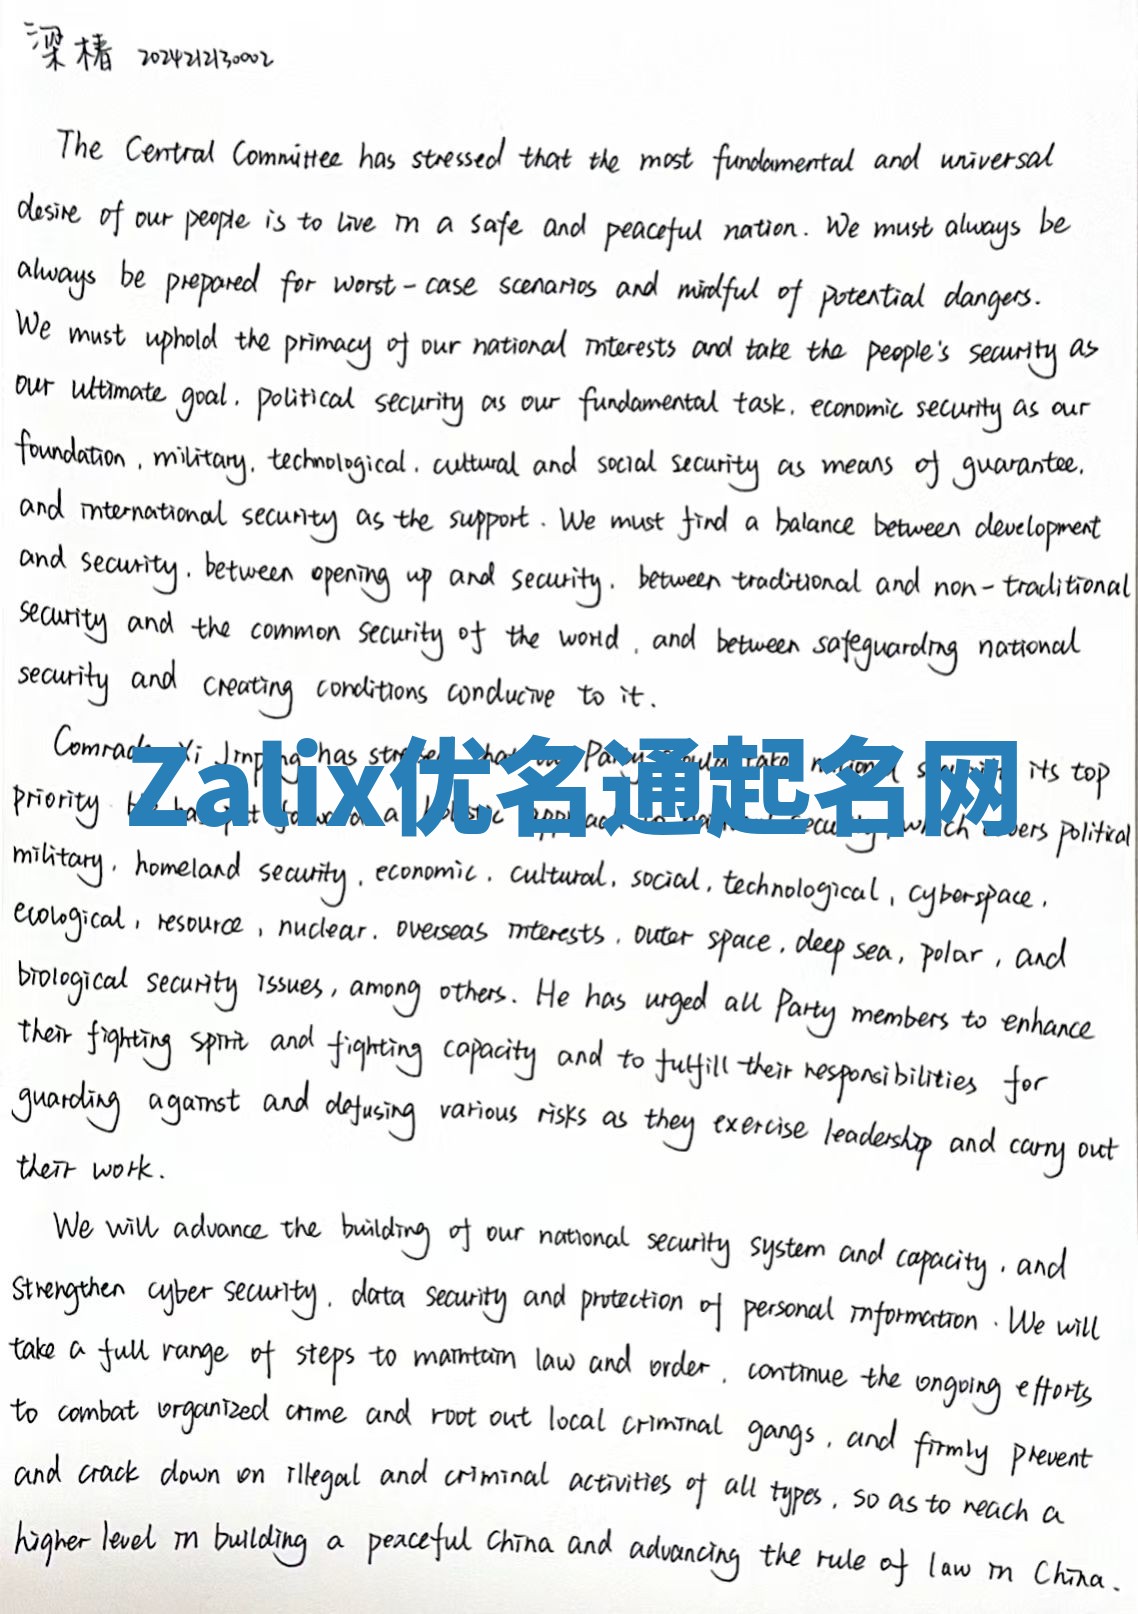 梁椿 2024212130002
The Central Committee has stressed that the most fundamental and universal
desire of our people is to live in a safe and peaceful nation. We must always be
always be prepared for worst-case scenarios and mindful of potential dangers.
We must uphold the primacy of our national interests and take the people's security as
our ultimate goal, political security as our fundamental task, economic security as our
foundation, military, technological, cultural and social security as means of guarantee,
and international security as the support. We must find a balance between development
and security, between opening up and security, between traditional and non-traditional
security and the common security of the world, and between safeguarding national
security and creating conditions conducive to it.
Comrade Xi Jinping has stressed that Party should take national its top
Zalix优名通起名网
priority has put forward a holistic approach to security, which covers political
military, homeland security, economic, cultural, social, technological, cyberspace,
ecological, resource, nuclear, overseas interests, outer space, deep sea, polar, and
biological security issues, among others. He has urged all Party members to enhance
their fighting spirit and fighting capacity and to fulfill their responsibilities for
guarding against and defusing various risks as they exercise leadership and carry out
their work.
We will advance the building of our national security system and capacity, and
strengthen cyber security, data security and protection of personal information. We will
take a full range of steps to maintain law and order, continue the ongoing efforts
to combat organized crime and root out local criminal gangs, and firmly prevent
and crack down on illegal and criminal activities of all types, so as to reach a
higher level in building a peaceful China and advancing the rule of law in China.